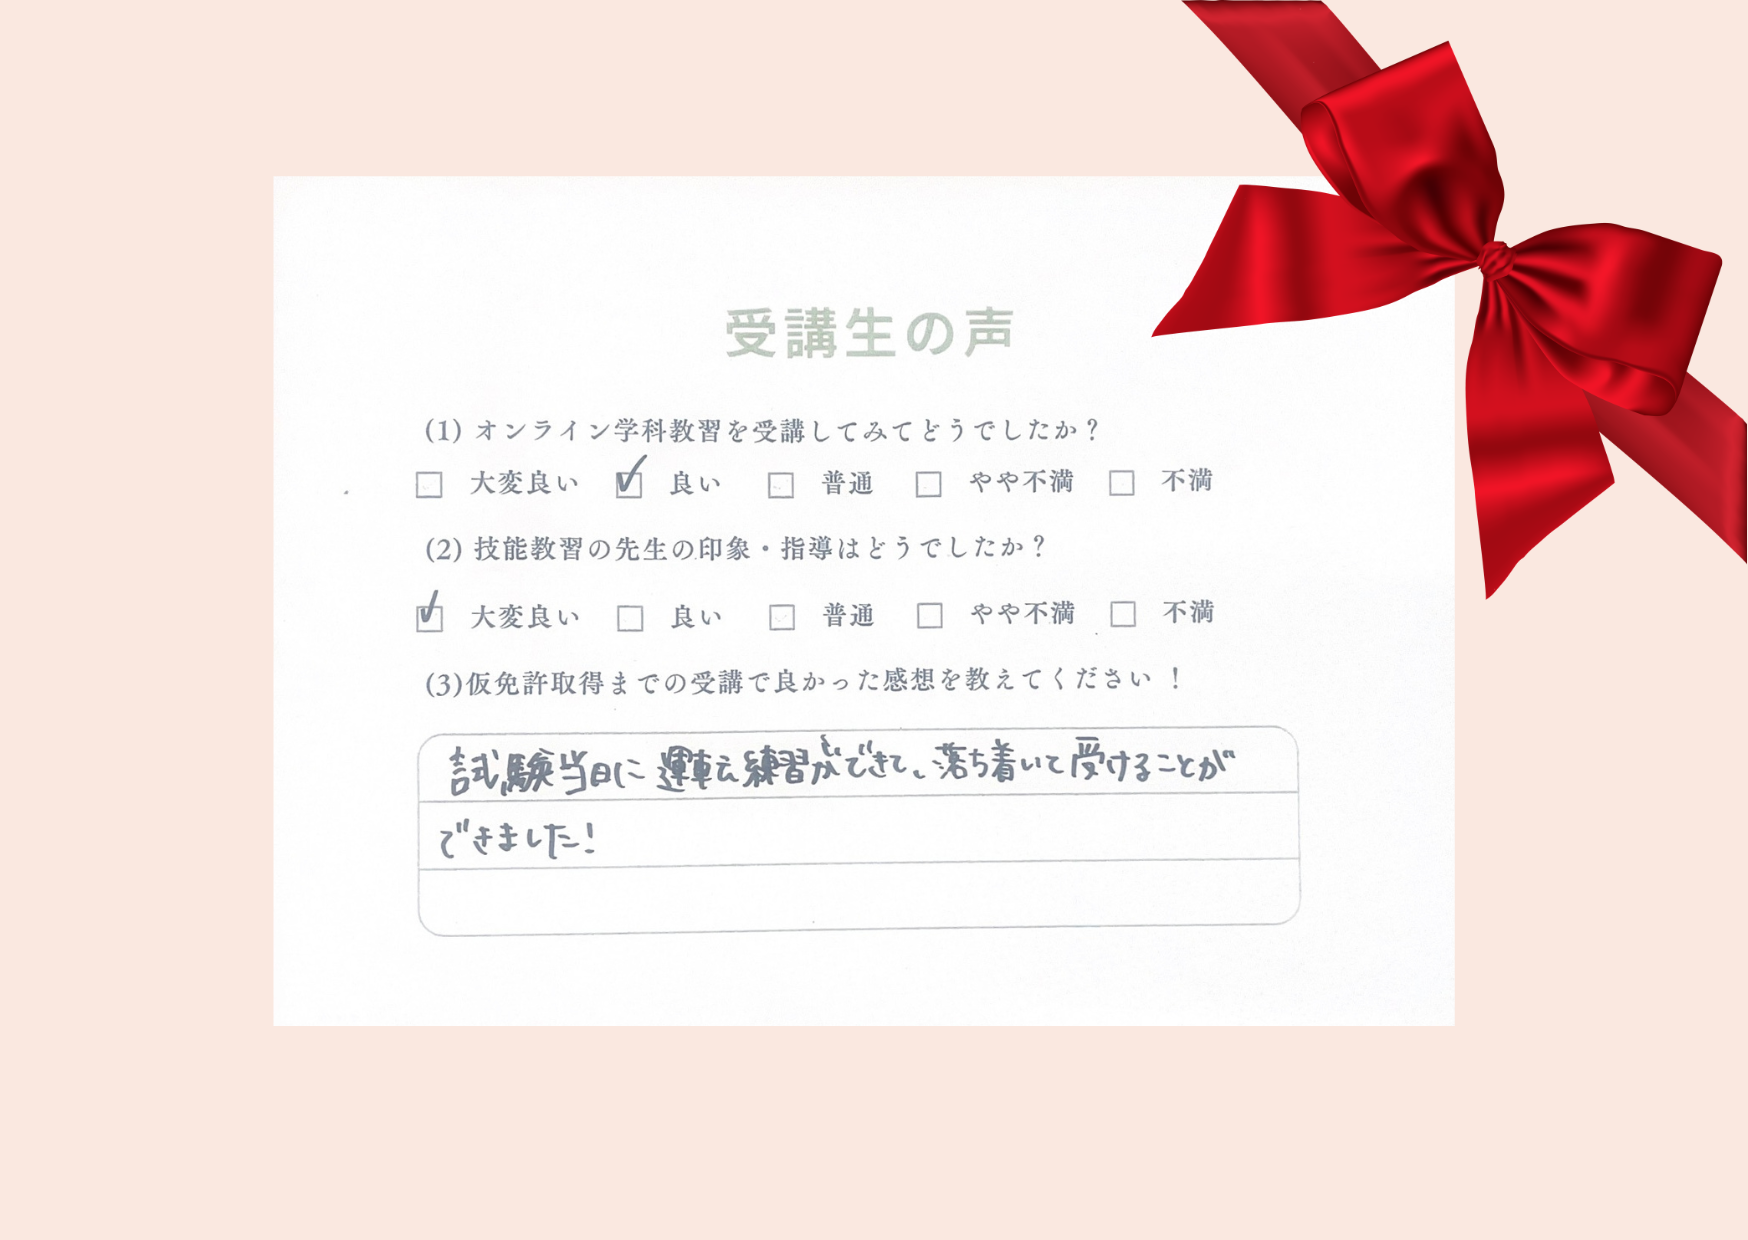 受講生の声
(1) オンライン学科教習を受講してみてどうでしたか？
□ 大変良い ☑ 良い □ 普通 □ やや不満 □ 不満
(2) 技能教習の先生の印象・指導はどうでしたか？
☑ 大変良い □ 良い □ 普通 □ やや不満 □ 不満
(3)仮免許取得までの受講で良かった感想を教えてください！
試験当日に運転練習ができて、落ち着いて受けることが
できました！